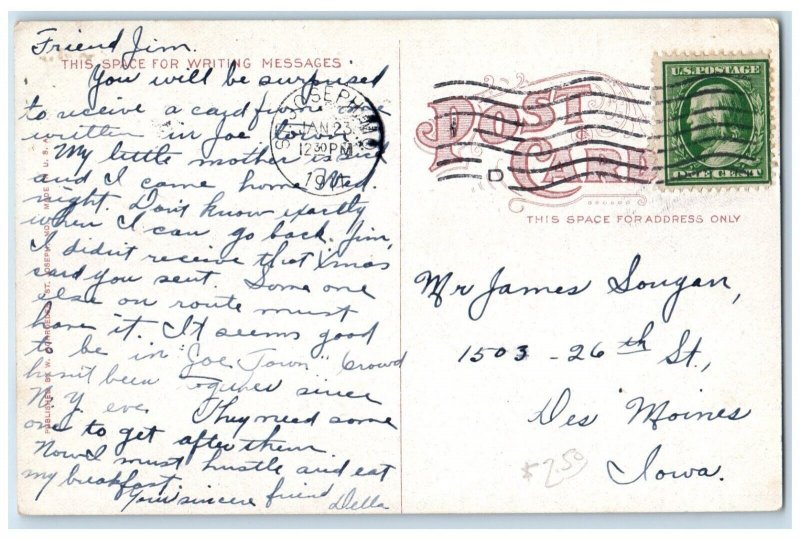 Friend Jim.
THIS SPACE FOR WRITING MESSAGES
You will be surprised
to receive a card from me
written in Joe Town.
My little mother is sick
and I came home Wed.
night. Don't know exactly
when I can go back. Jim,
I didn't receive that Xmas
card you sent. Some one
else on route must
have it. It seems good
to be in "Joe Town" Crowd
hasn't been since
N.Y. eve. They need some
one to get after them.
Now I must hustle and eat
my breakfast.
Your sincere friend
Della
ST. JOSEPH, MO.
JAN 23
12 30 PM
POST CARD
D
U.S. POSTAGE
ONE CENT
THIS SPACE FOR ADDRESS ONLY
Mr James Sougan,
1503 - 26th St,
Des Moines
Iowa.
$2.50
PUBLISHED BY W. ST. JOSEPH, MO. MADE IN U.S.A.